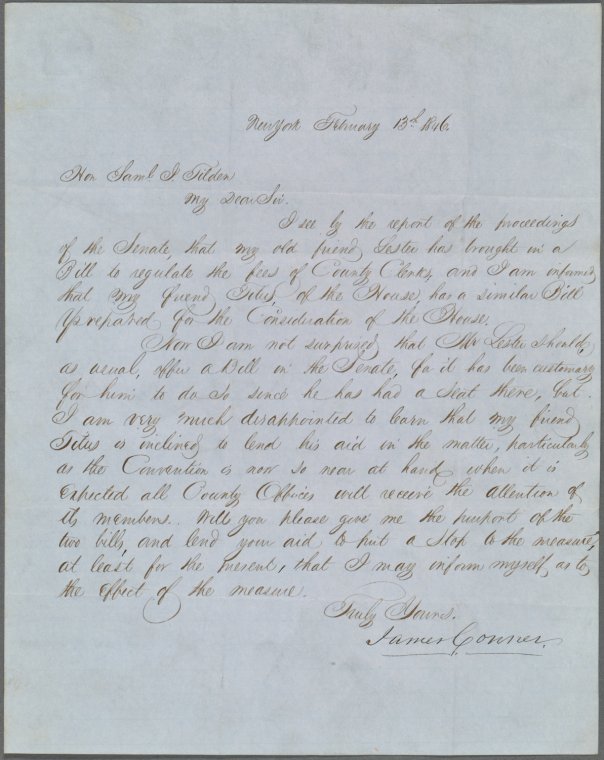 New York February 13th 1846.
Hon Saml J. Tilden
My Dear Sir.
I see by the report of the proceedings
of the Senate that my old friend Lester has brought in a
Bill to regulate the fees of County Clerks, and I am informed
that my friend Titus, of the House, has a similar Bill
prepared for the Consideration of the House.
Now I am not surprised that Mr Lester should,
as usual, offer a Bill in the Senate, for it has been customary
for him to do so since he has had a seat there, but
I am very much disappointed to learn that my friend
Titus is inclined to lend his aid in the matter, particularly
as the Convention is now so near at hand, when it is
expected all County Offices will receive the attention of
its members. Will you please give me the purport of the
two bills, and lend your aid to put a stop to the measure,
at least for the present, that I may inform myself as to
the effect of the measure.
Truly Yours.
James Conner.